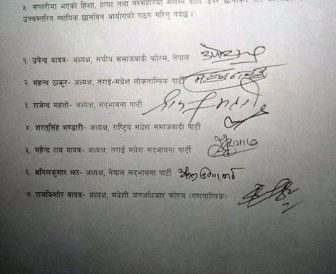 ५. सप्तरीमा भएको हिंसा, हत्या तथा नरसंहारमा संलग्न दोषी उपर छानबिन
उच्चस्तरिय न्यायिक छानबिन आयोगको गठन गरिनु पर्दछ ।
१. उपेन्द्र यादव- अध्यक्ष, संघीय समाजवादी फोरम, नेपाल
२. महन्थ ठाकुर- अध्यक्ष, तराई-मधेश लोकतान्त्रिक पार्टी
३ राजेन्द्र महतो- अध्यक्ष, सद्भावना पार्टी
४. शरतसिंह भण्डारी- अध्यक्ष, राष्ट्रिय मधेश समाजवादी पार्टी
५. महेन्द्र राय यादव- अध्यक्ष, तराई मधेश सद्भावना पार्टी
६ अनिलकुमार झा- अध्यक्ष, नेपाल सद्भावना पार्टी
७ राजकिशोर यादव- अध्यक्ष, मधेशी जनअधिकार फोरम (गणतान्त्रिक)